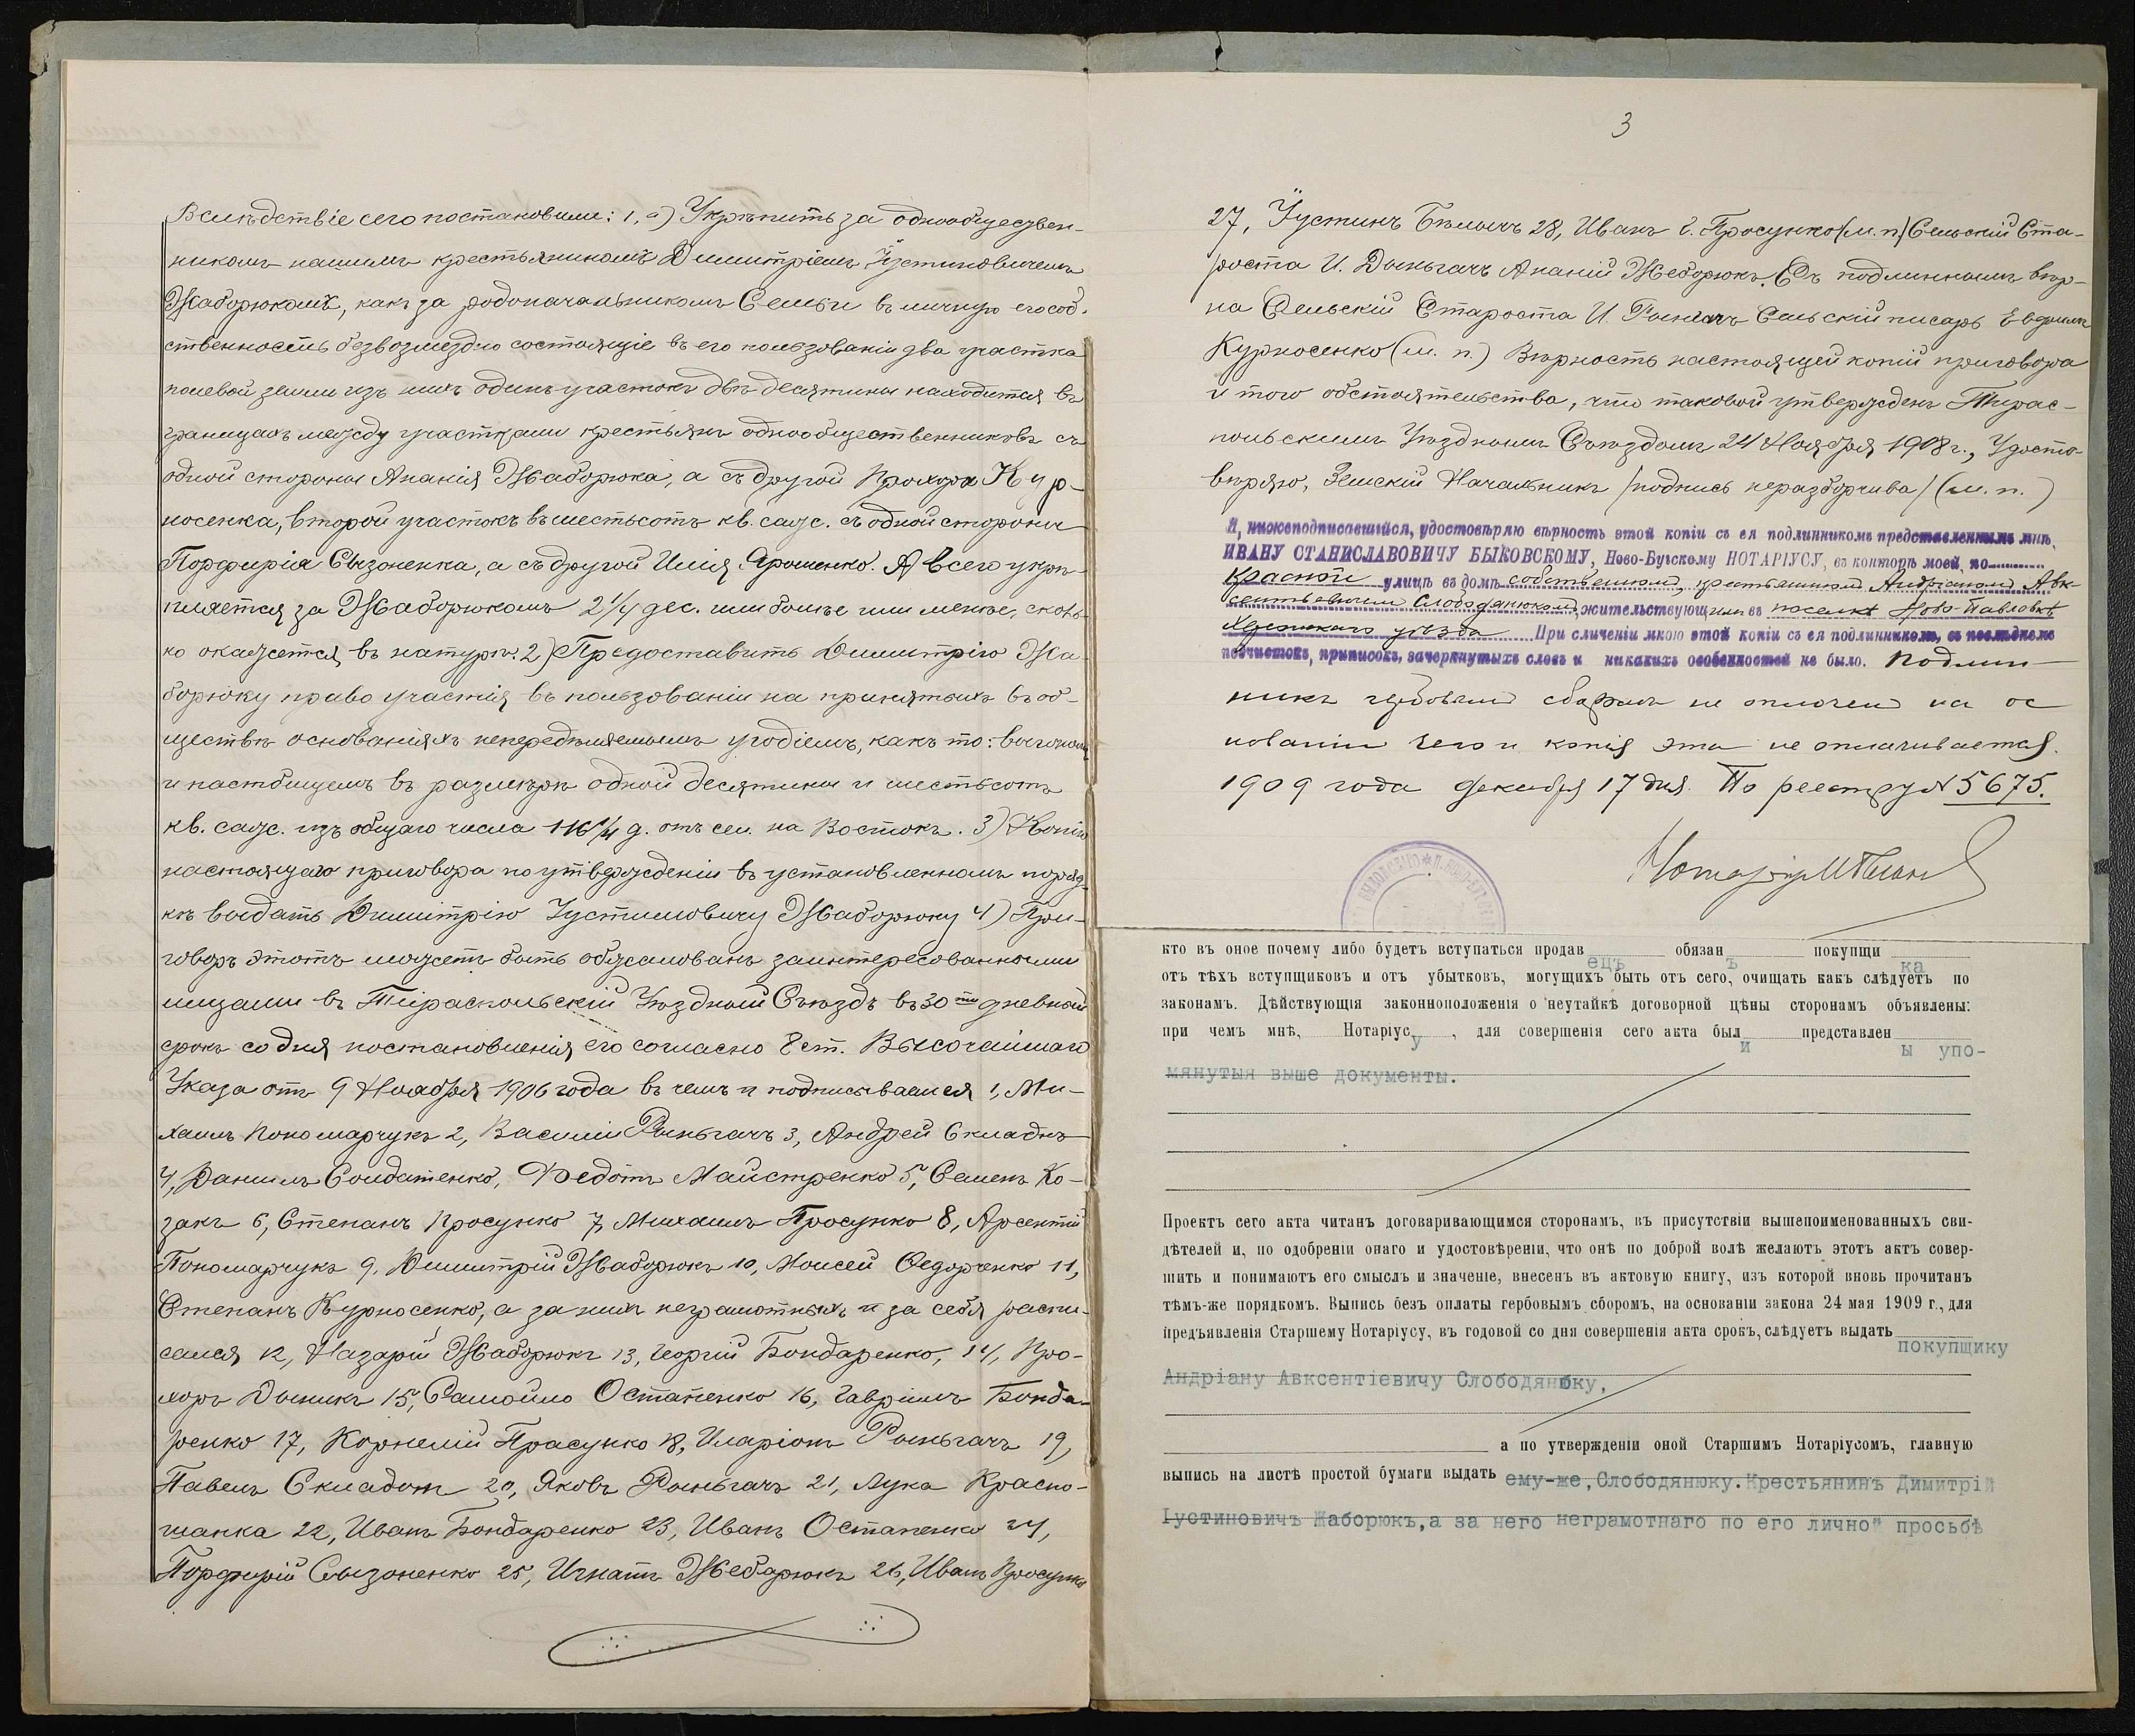 Вслѣдствіе сего постановили: 1, а) Укрѣпить за однообществен-
никомъ нашимъ крестьяниномъ Димитріемъ Іустиновичемъ
Жаборюкомъ, какъ за родоначальникомъ Семьи въ личную его соб-
ственность безвозмездно состоящіе въ его пользованіи два участка
полевой земли изъ нихъ одинъ участокъ двѣ десятины находится въ
границахъ между участками крестьянъ однообщественниковъ съ
одной стороны Ананія Жаборюка, а съ другой Прохора Кур-
носенка, второй участокъ въ шестьсотъ кв. саж. съ одной стороны
Порфирія Сызоненка, а съ другой Иліи Ярошенко. А всего укрѣ-
пляется за Жаборюкомъ 2 1/4 дес. или болѣе или менѣе, сколь-
ко окажется въ натурѣ. 2) Предоставить Димитрію Жа-
борюку право участія въ пользованіи на принятыхъ въ об-
ществѣ основаніяхъ непередѣляемымъ угодіемъ, какъ то: выгономъ
и пастбищемъ въ размѣрѣ одной десятины и шестьсотъ
кв. саж. изъ общаго числа 116 1/4 д. отъ сел. на Востокъ. 3) Копію
настоящаго приговора по утвержденіи въ установленномъ поряд-
кѣ выдать Димитрію Іустиновичу Жаборюку 4) При-
говоръ этотъ можетъ быть обжалованъ заинтересованными
лицами въ Тираспольскій Уѣздный Съѣздъ въ 30ти дневный
срокъ со дня постановленія его согласно 8 ст. Высочайшаго
Указа отъ 9 Ноября 1906 года въ чемъ и подписываемся 1, Ми-
хаилъ Пономарчукъ 2, Василій Рыньгачъ 3, Андрей Складнъ
4, Данилъ Солдатенко, Федотъ Майстренко 5, Семенъ Ко-
закъ 6, Степанъ Просунко 7, Михаилъ Просунко 8, Арсентій
Пономарчукъ 9, Димитрій Жаборюкъ 10, Моисей Федорченко 11,
Степанъ Курносенко, а за нихъ неграмотныхъ и за себя распи-
сался 12, Назарій Жаборюкъ 13, Георгій Бондаренко, 14, Про-
хоръ Дыникъ 15, Самойло Остапенко 16, Гавріилъ Бонда-
ренко 17, Корнелій Прасунко 18, Иларіонъ Рыньгачъ 19,
Павелъ 20, Яковъ Рыньгачъ 21, Лука Красно-
шапка 22, Иванъ Бондаренко 23, Иванъ Остапенко 24,
Порфирій Сызоненко 25, Игнатъ Жебарюкъ 26, Иванъ Просунко
3
27, Іустинъ Бѣлычъ 28, Иванъ Г. Просунко (м. п.) Сельскій Ста-
роста И. Рыньгачъ Ананій Жеборюкъ. Съ подлиннымъ вѣр-
на Сельскій Староста И. Рыньгачъ Сельскій писарь Евдокимъ
Курносенко (м. п.) Вѣрность настоящей копіи приговора
и того обстоятельства, что таковой утвержденъ Тирас-
польскимъ Уѣзднымъ Съѣздомъ 24 Ноября 1908 г., Удосто-
вѣряю, Земскій Начальникъ /подпись неразборчива/ (м. п.)
Я, нижеподписавшійся, удостовѣряю вѣрность этой копіи съ ея подлинникомъ представленнымъ мнѣ,
ИВАНУ СТАНИСЛАВОВИЧУ БЫКОВСКОМУ, Ново-Бугскому НОТАРІУСУ, въ конторѣ моей, по
Красной улицѣ въ домѣ собственномъ, крестьяниномъ Андріаномъ Авк-
сентьевичемъ Слободянюкомъ, жительствующимъ въ поселкѣ Ново-Павловкѣ
Херсонскаго уѣзда При сличеніи мною этой копіи съ ея подлинникомъ, въ послѣднемъ
подчистокъ, приписокъ, зачеркнутыхъ словъ и никакихъ особенностей не было. Подлин-
никъ гербовымъ сборомъ не оплоченъ на ос
нованіи чего и копія эта не оплачивается.
1909 года декабря 17 дня. По реестру № 5675.
Нотаріусъ
кто въ оное почему либо будетъ вступаться продавецъ обязанъ покупщика
отъ тѣхъ вступщиковъ и отъ убытковъ, могущихъ быть отъ сего, очищать какъ слѣдуетъ по
законамъ. Дѣйствующія законноположенія о неутайкѣ договорной цѣны сторонамъ объявлены:
при чемъ мнѣ, Нотаріусу, для совершенія сего акта были представлены упо-
мянутыя выше документы.
Проектъ сего акта читанъ договаривающимся сторонамъ, въ присутствіи вышепоименованныхъ сви-
дѣтелей и, по одобреніи онаго и удостовѣреніи, что онѣ по доброй волѣ желаютъ этотъ актъ совер-
шить и понимаютъ его смыслъ и значеніе, внесенъ въ актовую книгу, изъ которой вновь прочитанъ
тѣмъ-же порядкомъ. Выпись безъ оплаты гербовымъ сборомъ, на основаніи закона 24 мая 1909 г., для
предъявленія Старшему Нотаріусу, въ годовой со дня совершенія акта срокъ, слѣдуетъ выдать покупщику
Андріану Авксентіевичу Слободянюку,
а по утвержденіи оной Старшимъ Нотаріусомъ, главную
выпись на листѣ простой бумаги выдать ему-же, Слободянюку. Крестьянинъ Димитрій
Іустиновичъ Жаборюкъ, а за него неграмотнаго по его личной просьбѣ